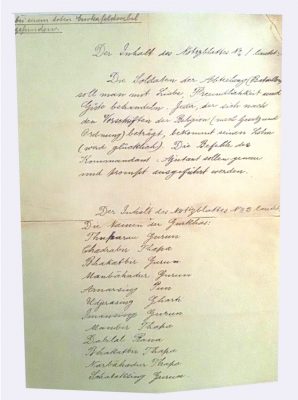 bei einem toten Gurkafeldwebel
gefunden.
Der Inhalt des Notizblattes No 1 lautet:
Die Soldaten der Abteilung (Bataillon)
soll man mit Liebe, Freundlichkeit und
Güte behandeln. Jeder, der sich nach
den Vorschriften der Religion (nach Gesetz und
Ordnung) beträgt, bekommt seinen Lohn
(wird glücklich). Die Befehle des
Kommandant Ajutant sollen genau
und prompt ausgeführt werden.
Der Inhalt des Notizblattes No 2 lautet
Die Namen der Gurkhas:
Gurun
Chadrabir Thapa
Bhakatbir Gurun
Manbahadur Gurun
Amarsing Pun
Udjrasing Gharti
Gurun
Manbir Thapa
Dalilal Rana
Thapa
Narbahadur Thapa
Gurun